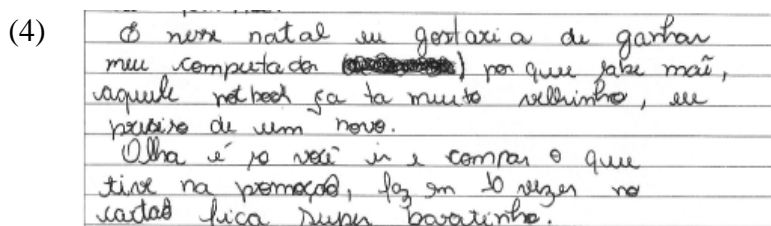 (4)
E nesse natal eu gostaria de ganhar
meu computador ) por que sabe mãe,
aquele notbook ga ta muito velhinho, eu
preciso de um novo.
Olha é so você ir e compar o que
tive na promoção, faz em 10 vezes no
cartão fica super baratinho.